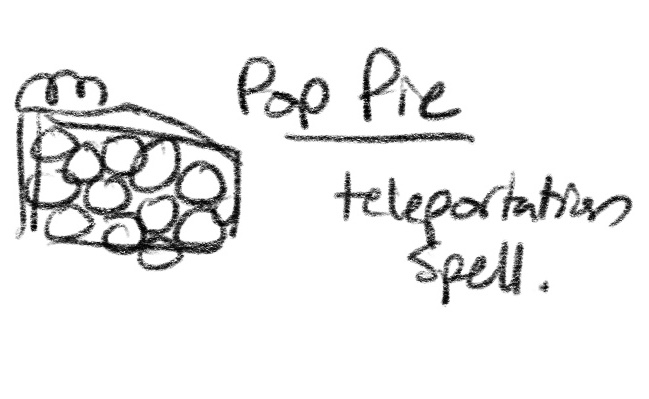 Pop Pie
teleportation
Spell.